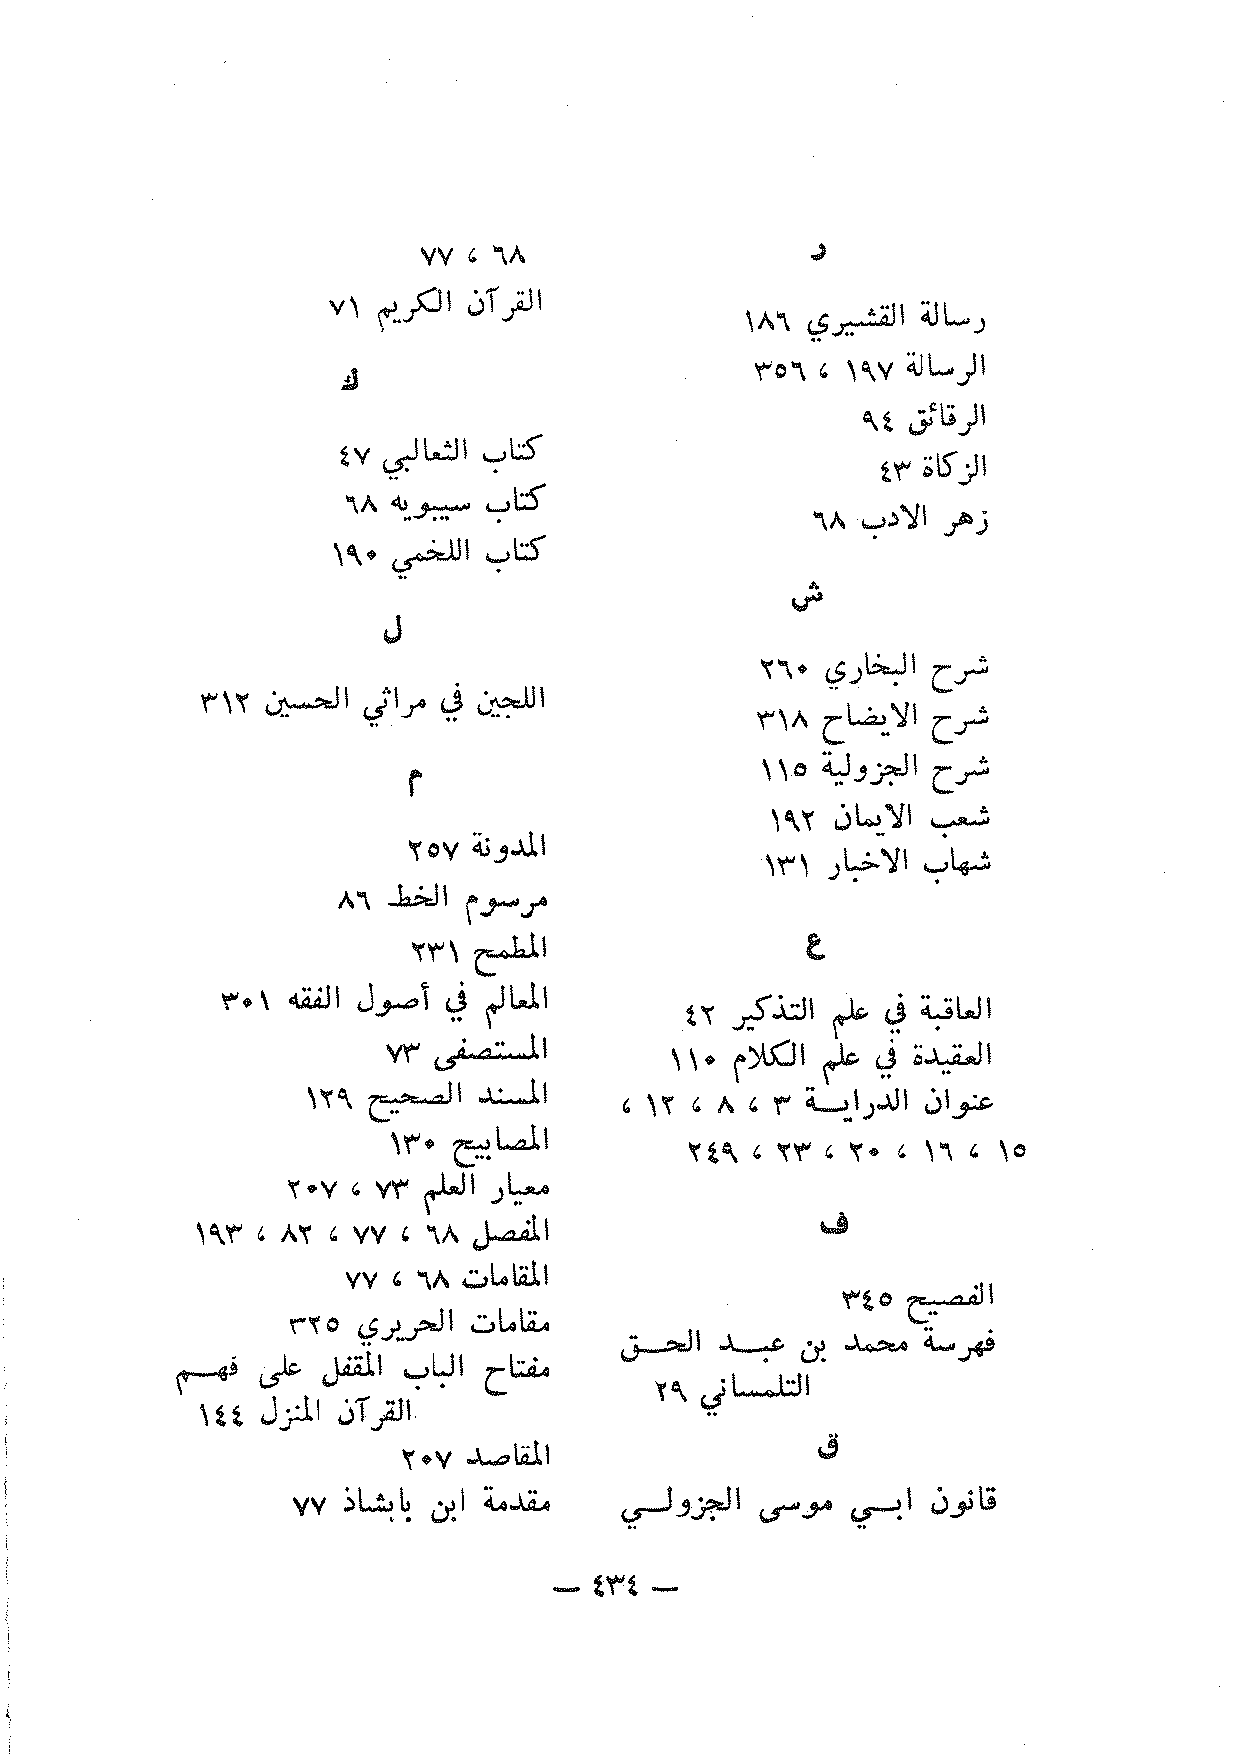 ر
رسالة القشيري ١٨٦
الرسالة ١٩٧ ، ٣٥٦
الرقائق ٩٤
الزكاة ٤٣
زهر الادب ٦٨
ش
شرح البخاري ٢٦٠
شرح الايضاح ٣١٨
شرح الجزولية ١١٥
شعب الايمان ١٩٢
شهاب الاخبار ١٣١
ع
العاقبة في علم التذكير ٤٢
العقيدة في علم الكلام ١١٠
عنوان الدرايـــة ٣ ، ٨ ، ١٢ ،
١٥ ، ١٦ ، ٢٠ ، ٢٣ ، ٢٤٩
ف
الفصيح ٣٤٥
فهرسة محمد بن عبـــد الحـــق
التلمساني ٢٩
ق
قانون ابـــي موسى الجزولـــي
٦٨ ، ٧٧
القرآن الكريم ٧١
ك
كتاب الثعالبي ٤٧
كتاب سيبويه ٦٨
كتاب اللخمي ١٩٠
ل
اللجين في مراثي الحسين ٣١٢
م
المدونة ٢٥٧
مرسوم الخط ٨٦
المطمح ٢٣١
المعالم في أصول الفقه ٣٠١
المستصفى ٧٣
المسند الصحيح ١٢٩
المصابيح ١٣٠
معيار العلم ٧٣ ، ٢٠٧
المفصل ٦٨ ، ٧٧ ، ٨٢ ، ١٩٣
المقامات ٦٨ ، ٧٧
مقامات الحريري ٣٢٥
مفتاح الباب المقفل على فهـــم
القرآن المنزل ١٤٤
المقاصد ٢٠٧
مقدمة ابن بابشاذ ٧٧
— ٤٣٤ —